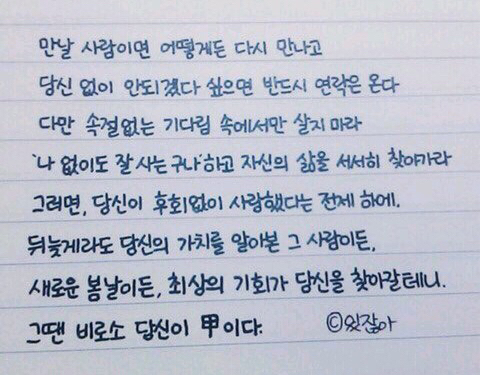 만날 사람이면 어떻게든 다시 만나고
당신 없이 안되겠다 싶으면 반드시 연락은 온다
다만 속절없는 기다림 속에서만 살지 마라
'나 없이도 잘 사는구나'하고 자신의 삶을 서서히 찾아가라
그러면, 당신이 후회없이 사랑했다는 전제 하에.
뒤늦게라도 당신의 가치를 알아본 그 사람이든,
새로운 봄날이든, 최상의 기회가 당신을 찾아갈테니.
그땐 비로소 당신이 甲이다. ©있잖아